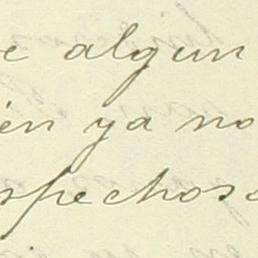 e algun
én ya no
spechos